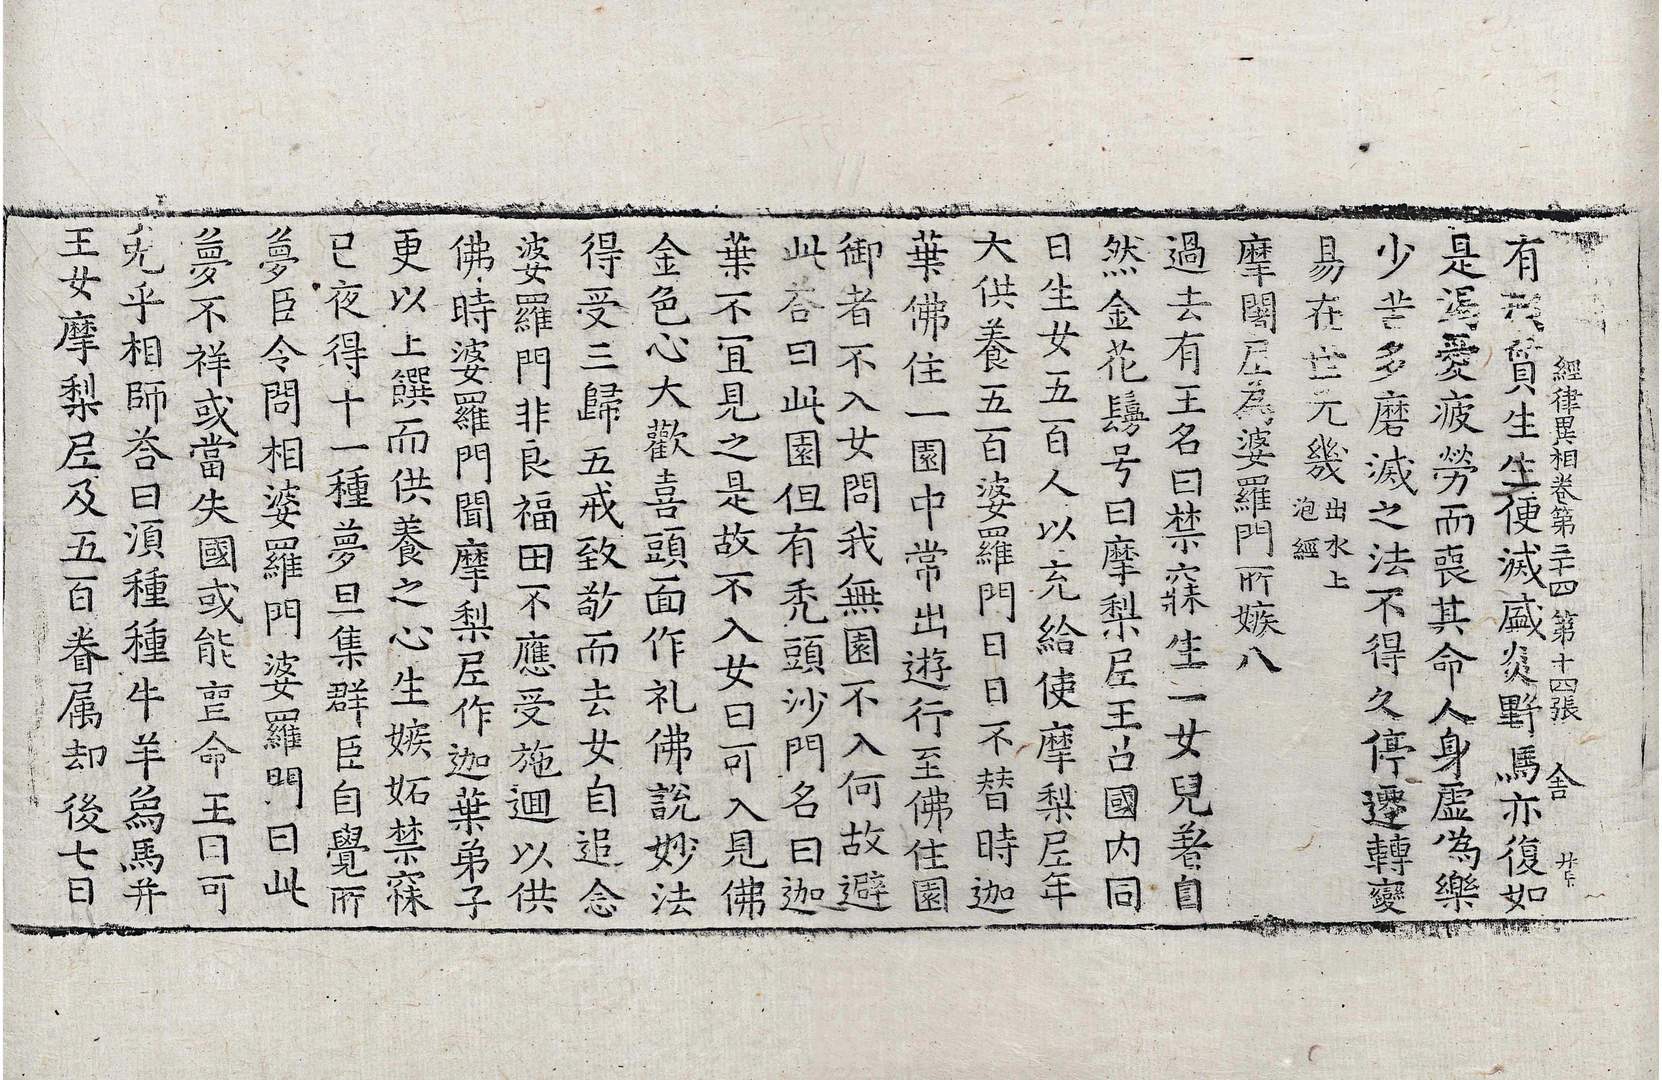 經律異相卷第三十四 第十四張 舍
有形質生生便滅盛炎野馬亦復如
是渴愛疲勞而喪其命人身虛為樂
少苦多磨滅之法不得久停遷轉變
易在世无幾出水上泡經
摩闍尼為婆羅門所嫉八
過去有王名曰禁寐生一女兒著自
然金花鬘号曰摩梨尼王占國内同
日生女五百人以充給使摩梨尼年
大供養五百婆羅門日日不替時迦
葉佛住一園中常出遊行至佛住園
御者不入女問我無園不入何故避
此荅曰此園但有禿頭沙門名曰迦
葉不冝見之是故不入女曰可入見佛
金色心大歡喜頭面作礼佛說妙法
得受三歸五戒致敬而去女自追念
婆羅門非良福田不應受施迴以供
佛時婆羅門聞摩梨尼作迦葉弟子
更以上饌而供養之心生嫉妬禁寐
已夜得十一種夢旦集群臣自覺所
夢臣令問相婆羅門婆羅門曰此
夢不祥或當失國或能亶命王曰可
免乎相師荅曰湏種種牛羊烏馬并
王女摩梨尼及五百眷属却後七日